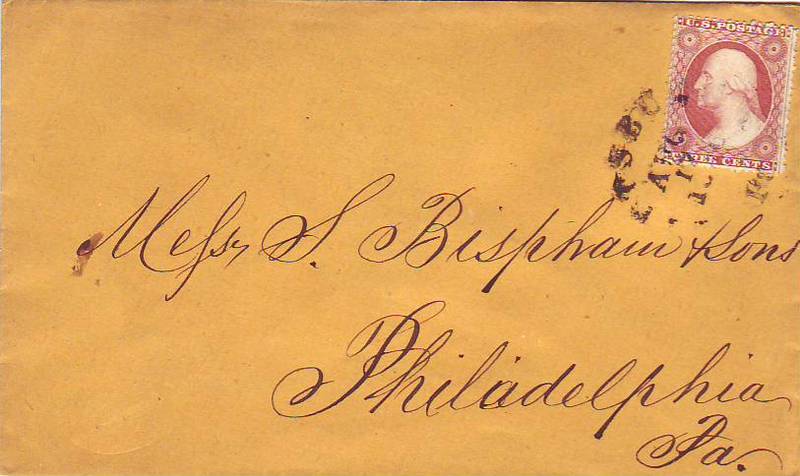 U.S. POSTAGE
THREE CENTS
AUG
Messrs S. Bispham & Sons
Philadelphia
Pa.